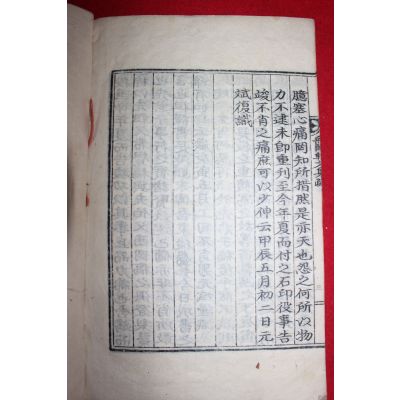 臆塞心痛罔知所措然是亦天也怨之何所以物
力不逮未卽重刊至今年夏而付之石印役事告
竣不肖之痛庶可以少伸云甲辰五月初二日元
斌復識